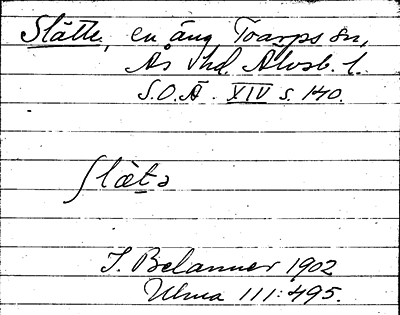 Slätte, en äng Toarps sn,
Ås hd. Älvsb. l.
S.O.Ä. XIV s. 140.
slätə
J. Belanner 1902
Ulma 111:495.